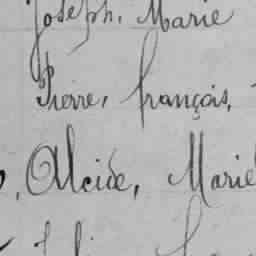 Joseph, Marie
Pierre, françois,
, Alcide, Marie